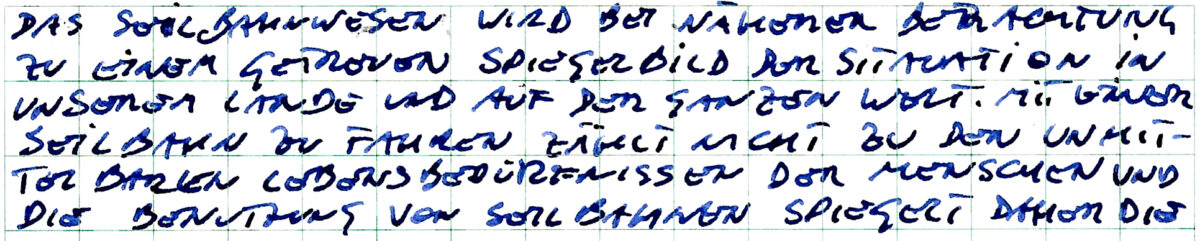 DAS SEILBAHNWESEN WIRD BEI NÄHERER BETRACHTUNG
ZU EINEM GETREUEN SPIEGELBILD DER SITUATION IN
UNSEREM LANDE UND AUF DER GANZEN WELT. MIT EINER
SEILBAHN ZU FAHREN ZÄHLT NICHT ZU DEN UNMIT-
TELBAREN LEBENSBEDÜRFNISSEN DER MENSCHEN UND
DIE BENUTZUNG VON SEILBAHNEN SPIEGELT DAHER DIE